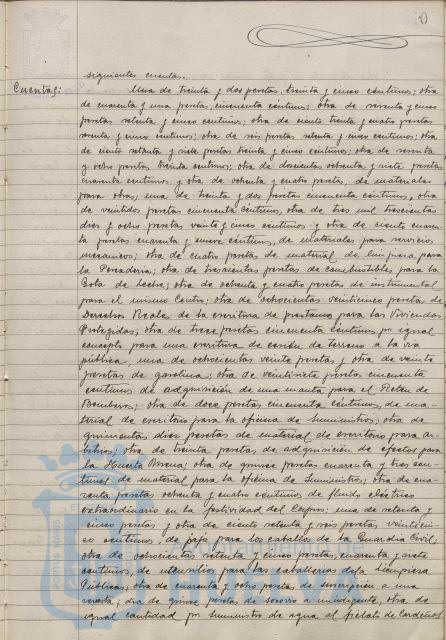 siguientes cuentas.
Cuentas: Una de treinta y dos pesetas, treinta y cinco céntimos; otra
de cuarenta y una pesetas, cincuenta céntimos; otra de sesenta y cinco
pesetas setenta y cinco céntimos; otra de ciento treinta y cuatro pesetas
y cinco céntimos; otra de seis pesetas setenta y cinco céntimos; otra
de ciento setenta y siete pesetas treinta y cinco céntimos; otra de sesenta
y ocho pesetas treinta céntimos; otra de doscientas ochenta y siete pesetas
cuarenta céntimos y otra de ochenta y cuatro pesetas, de materiales
para obras; una de treinta y dos pesetas cincuenta céntimos, otra
de veintidos pesetas cincuenta céntimos, otra de tres mil trescientas
diez y ocho pesetas veinte y cinco céntimos y otra de ciento cuaren-
ta pesetas cuarenta y nueve céntimos, de materiales para servicios
mecanicos; otra de cuatro pesetas de material de limpieza para
la Pescaderia; otra de trescientas pesetas de combustibles para la
Gota de Leche; otra de ochenta y cuatro pesetas de instrumental
para el mismo Centro; otra de ochocientas veinticinco pesetas de
Derechos Reales de la escritura de prestamo para las Viviendas
Protegidas; otra de trece pesetas cincuenta céntimos por igual
concepto para una escritura de cesión de terreno a la via
pública, una de ochocientas veinte pesetas y otra de veinte
pesetas de gasolina; otra de veintisiete pesetas cincuenta
céntimos de adquisición de una manta para el Reten de
Bomberos; otra de doce pesetas cincuenta céntimos, de ma-
terial de escritorio para la oficina de Suministros; otra de
quinientas diez pesetas de material de escritorio para Ar-
bitrios; otra de treinta pesetas de adquisición de efectos para
la Huerta; otra de quince pesetas cuarenta y tres cen-
timos de material para la oficina de Suministros; otra de cua-
renta pesetas ochenta y cuatro céntimos de fluido eléctrico
extraordinario en la festividad del Corpus; una de setenta y
cinco pesetas y otra de ciento setenta y seis pesetas veintícin-
co céntimos, de paja para los caballos de la Guardia Civil;
otra de ochocientas setenta y cinco pesetas, cuarenta y siete
céntimos, de utensilios para las caballerias de la Limpieza
Públicas; otra de cuarenta y ocho pesetas de suscripción a una
revista; otra de quince pesetas de socorro a un indigente, otra de
igual cantidad por suministro de agua al de Cardeñas